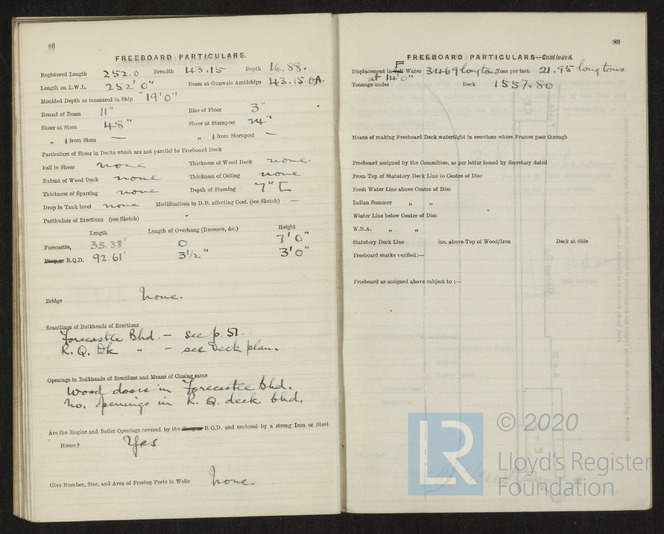 88
FREEBOARD PARTICULARS.
Registered Length 252.0 Breadth 43.15 Depth 16.88.
Length on L.W.L. 252' 0" Beam at Gunwale Amidships 43.15 OA.
Moulded Depth as measured in Ship 19' 0"
Round of Beam 11" Rise of Floor 3"
Sheer at Stem 48" Sheer at Sternpost 24"
" ⅛ from Stem — " ⅛ from Sternpost —
Particulars of Sheer in Decks which are not parallel to Freeboard Deck
Fall in Sheer none Thickness of Wood Deck none.
Extent of Wood Deck none Thickness of Ceiling none
Thickness of Sparring none Depth of Framing 7" [
Drop in Tank level none Modifications in D.B. affecting Coef. (see Sketch) —
Particulars of Erections (see Sketch)
Length Length of Overhang (Recesses, &c.) Height
Forecastle, 35.38' 0 7' 0"
Poop or R.Q.D. 92.61' 3½" 3' 0"
Bridge None.
Scantlings of Bulkheads of Erections
Forecastle Bhd. — see p. 51.
R. Q. Dk " — see Deck plan.
Openings in Bulkheads of Erections and Means of Closing same
Wood doors in Forecastle bhd.
No. openings in R. Q. deck bhd.
Are the Engine and Boiler Openings covered by the Bridge R.Q.D. and enclosed by a strong Iron or Steel
House? Yes
Give Number, Size, and Area of Freeing Ports in Wells None.
89
FREEBOARD PARTICULARS—Continued.
Displacement in Salt Water 3469 long tons Tons per inch 21.95 long tons
at 14' 0"
Tonnage under Deck 1557.80
Means of making Freeboard Deck watertight in erections where Frames pass through
Freeboard assigned by the Committee, as per letter issued by Secretary dated
From Top of Statutory Deck Line to Centre of Disc
Fresh Water Line above Centre of Disc
Indian Summer " "
Winter Line below Centre of Disc
W.N.A. " "
Statutory Deck Line ins. above Top of Wood/Iron Deck at Side
Freeboard marks verified:—
Freeboard as assigned above subject to:—
LR
© 2020
Lloyd's Register
Foundation